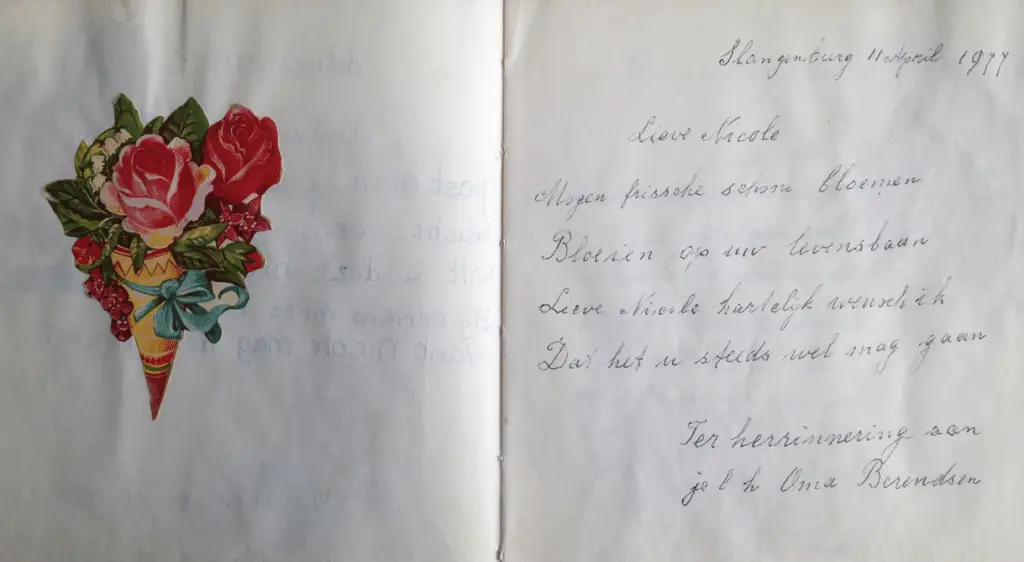 Slangenburg 11 April 1977
Lieve Nicole
Mogen frissche schone bloemen
Bloeien op uw levensbaan
Lieve Nicole hartelijk wensch ik
Dat het u steeds wel mag gaan
Ter herrinnering aan
je l h Oma Berendsen